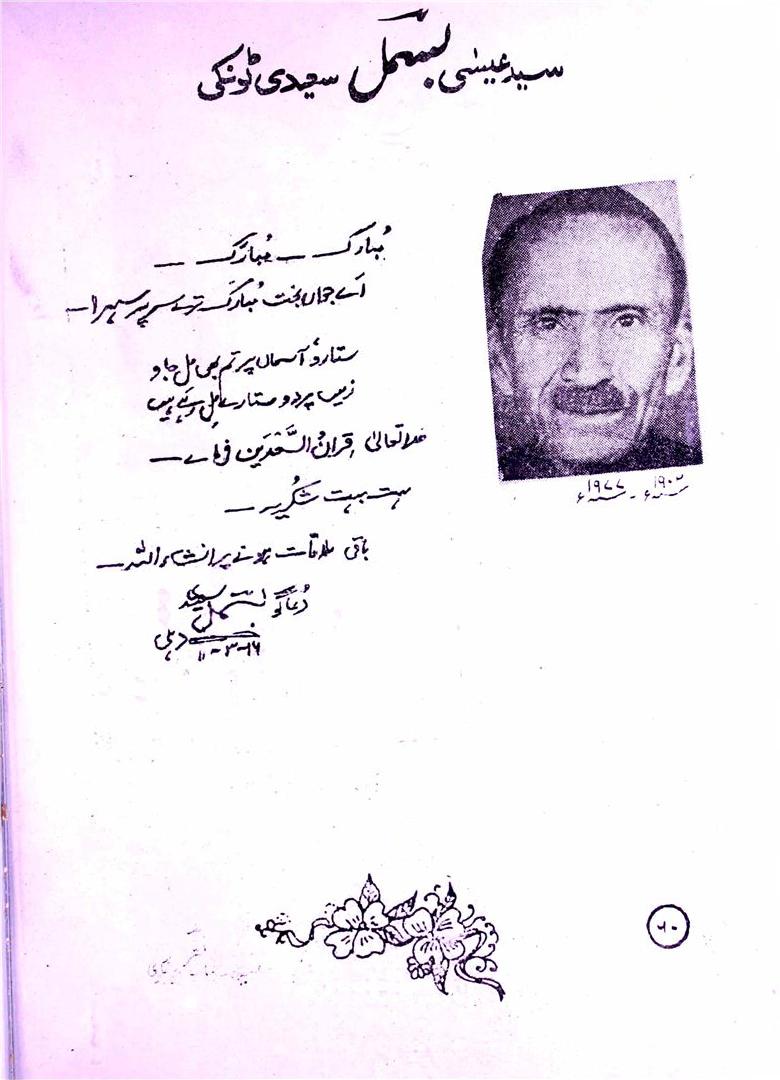 سید عیسٰی بسمل سعیدی ٹونکی
۱۹۰۲ء - ۱۹۷۷ء
مُبارک – مُبارَک –
اَے جواں بخت مُبارک ترے سر پر سہرا –
ستارو آسماں پر تم بھی مل جاو
زمیں پر دو ستارے مل رہے ہیں
خدا تعالیٰ قِرانُ السَّعْدَین فرماے –
بہت بہت شکریہ –
باقی ملاقات ہونے پر انشاءاللہ –
دُعا گو بسمل سعیدی
دہلی
۱۶-۳-
۶۰